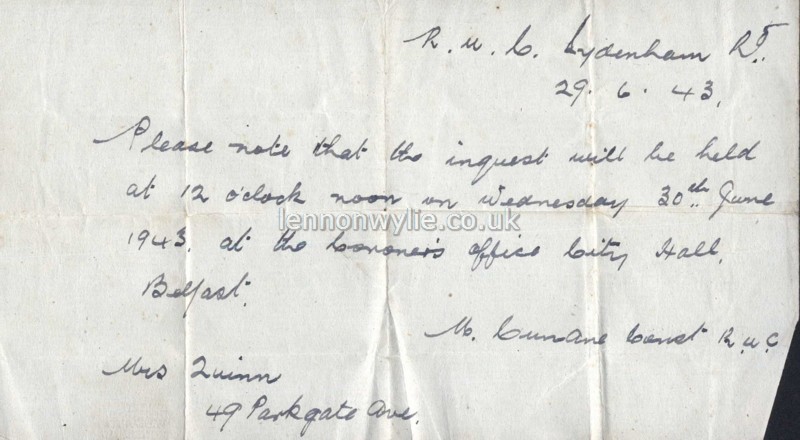 R. U. C. Sydenham Rd.
29. 6. 43.
Please note that the inquest will be held
at 12 o'clock noon on Wednesday 30th June
lennonwylie.co.uk
1943. at the Coroner's office City Hall,
Belfast.
M. Cunane Const R.U.C
Mrs Quinn
49 Parkgate Ave.